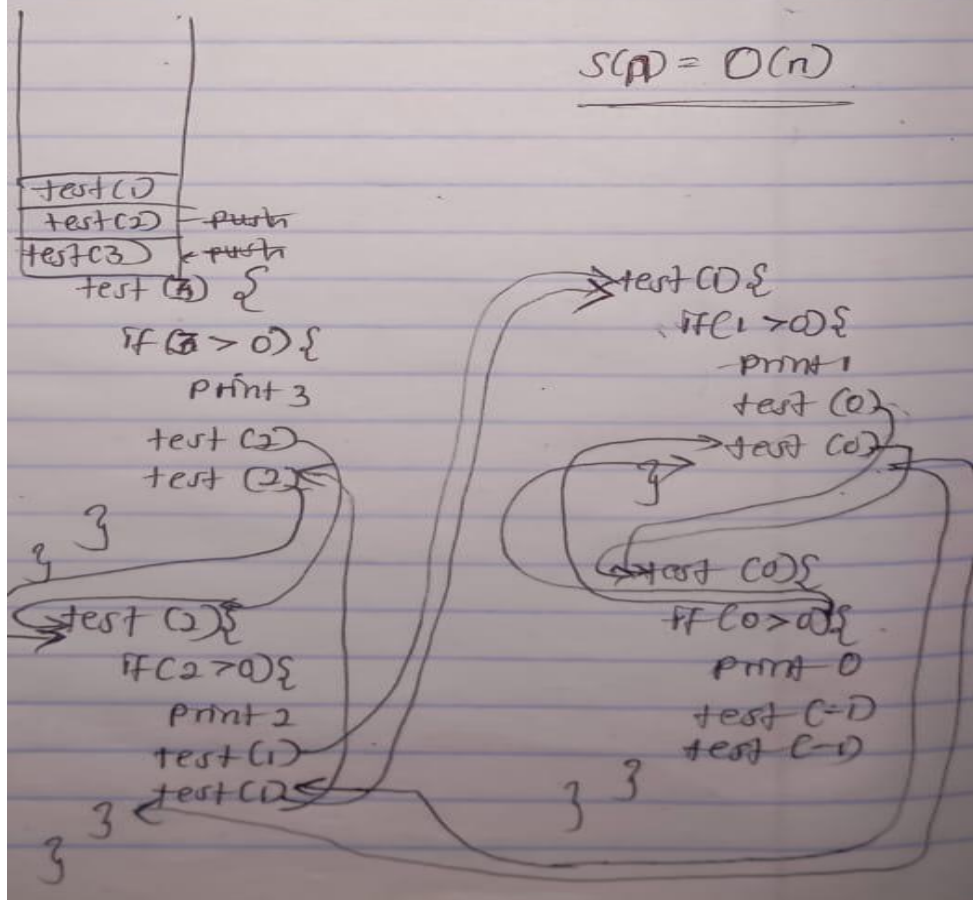 S(n) = O(n)
test(1)
test(2) push
test(3) push
test(3) {
if(3 > 0) {
print 3
test (2)
test (2)
}
}
test (2) {
if(2 > 0) {
print 2
test(1)
test(1)
}
}
test (1) {
if(1 > 0) {
print 1
test (0)
test (0)
}
test (0) {
if (0 > 0) {
print 0
test (-1)
test (-1)
}
}